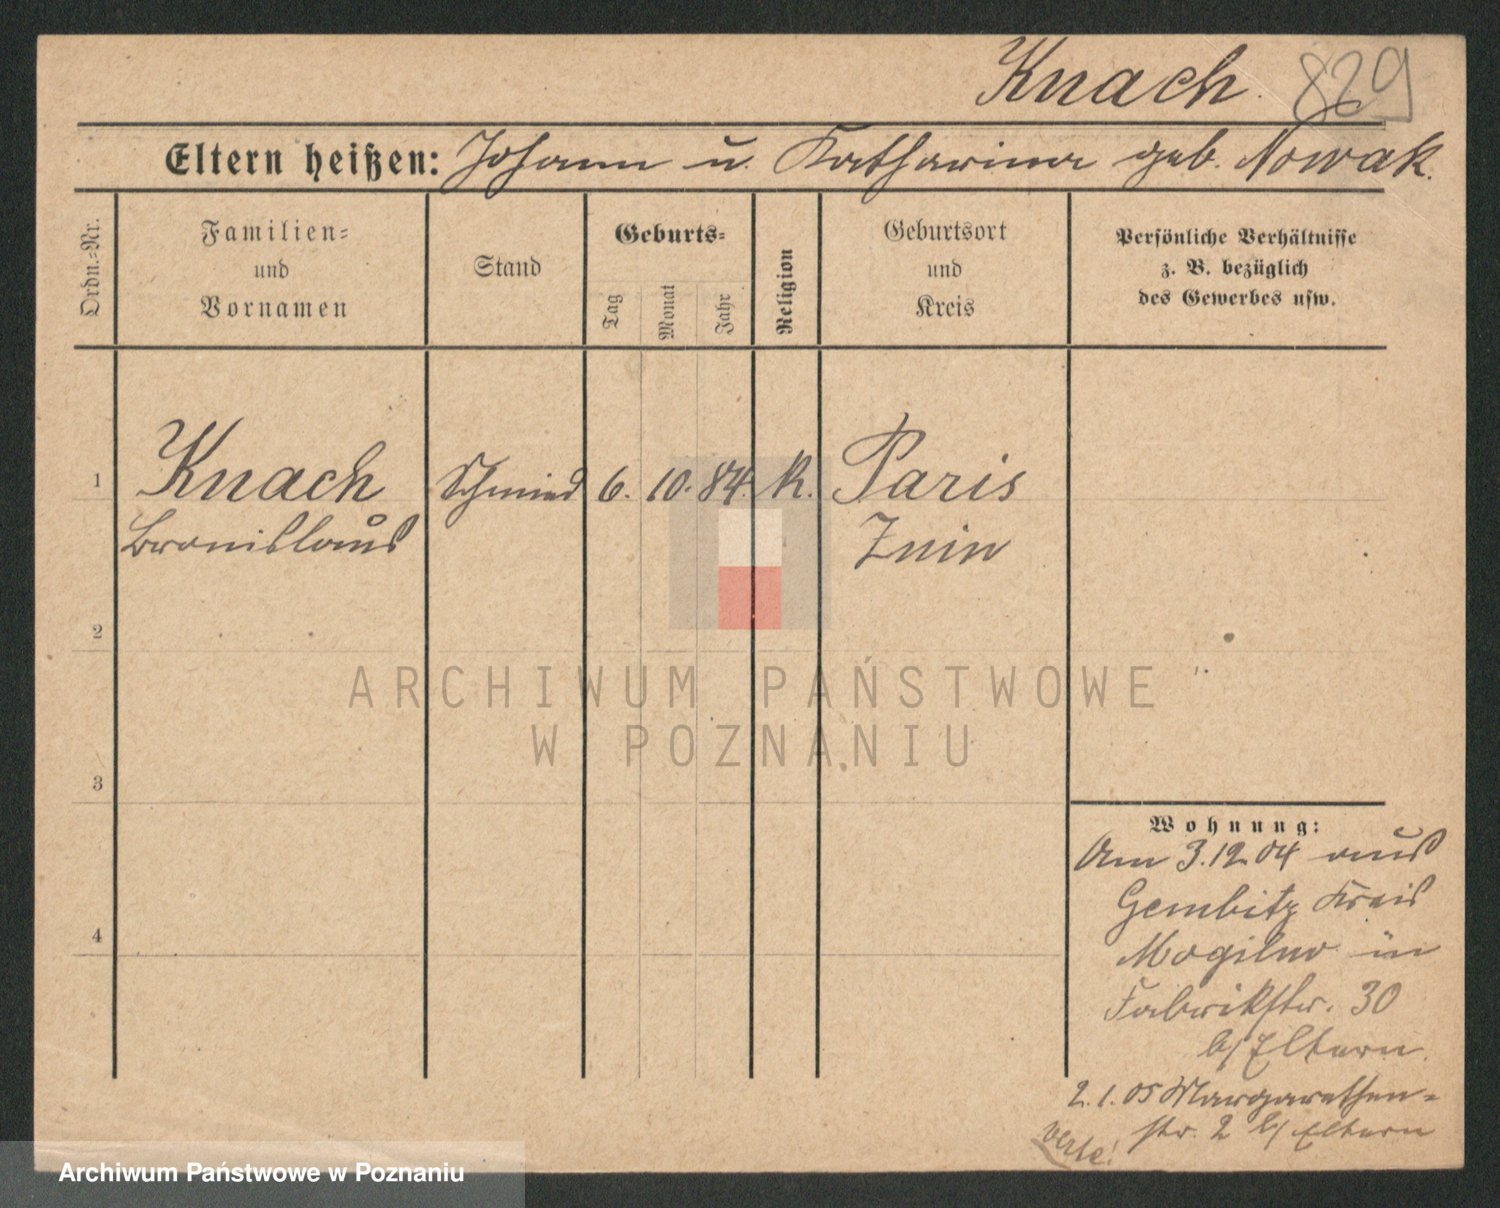 Knach. 829
Eltern heißen: Johann u. Katharina geb. Nowak.
Ordn.-Nr.
Familien-
und
Vornamen
Stand
Geburts-
Tag
Monat
Jahr
Religion
Geburtsort
und
Kreis
Persönliche Verhältnisse
z. B. bezüglich
des Gewerbes usw.
1 Knach Schmied 6. 10. 84. K. Paris
Bronislaus Znin
2
3
4
Wohnung:
Am 3.12.04 aus
Gembitz Kreis
Mogilno in
Fabrikstr. 30
b/ Eltern.
2.1.05 Margarethen-
str. 2 b/ Eltern
Verte!
ARCHIWUM PAŃSTWOWE
W POZNANIU
Archiwum Państwowe w Poznaniu